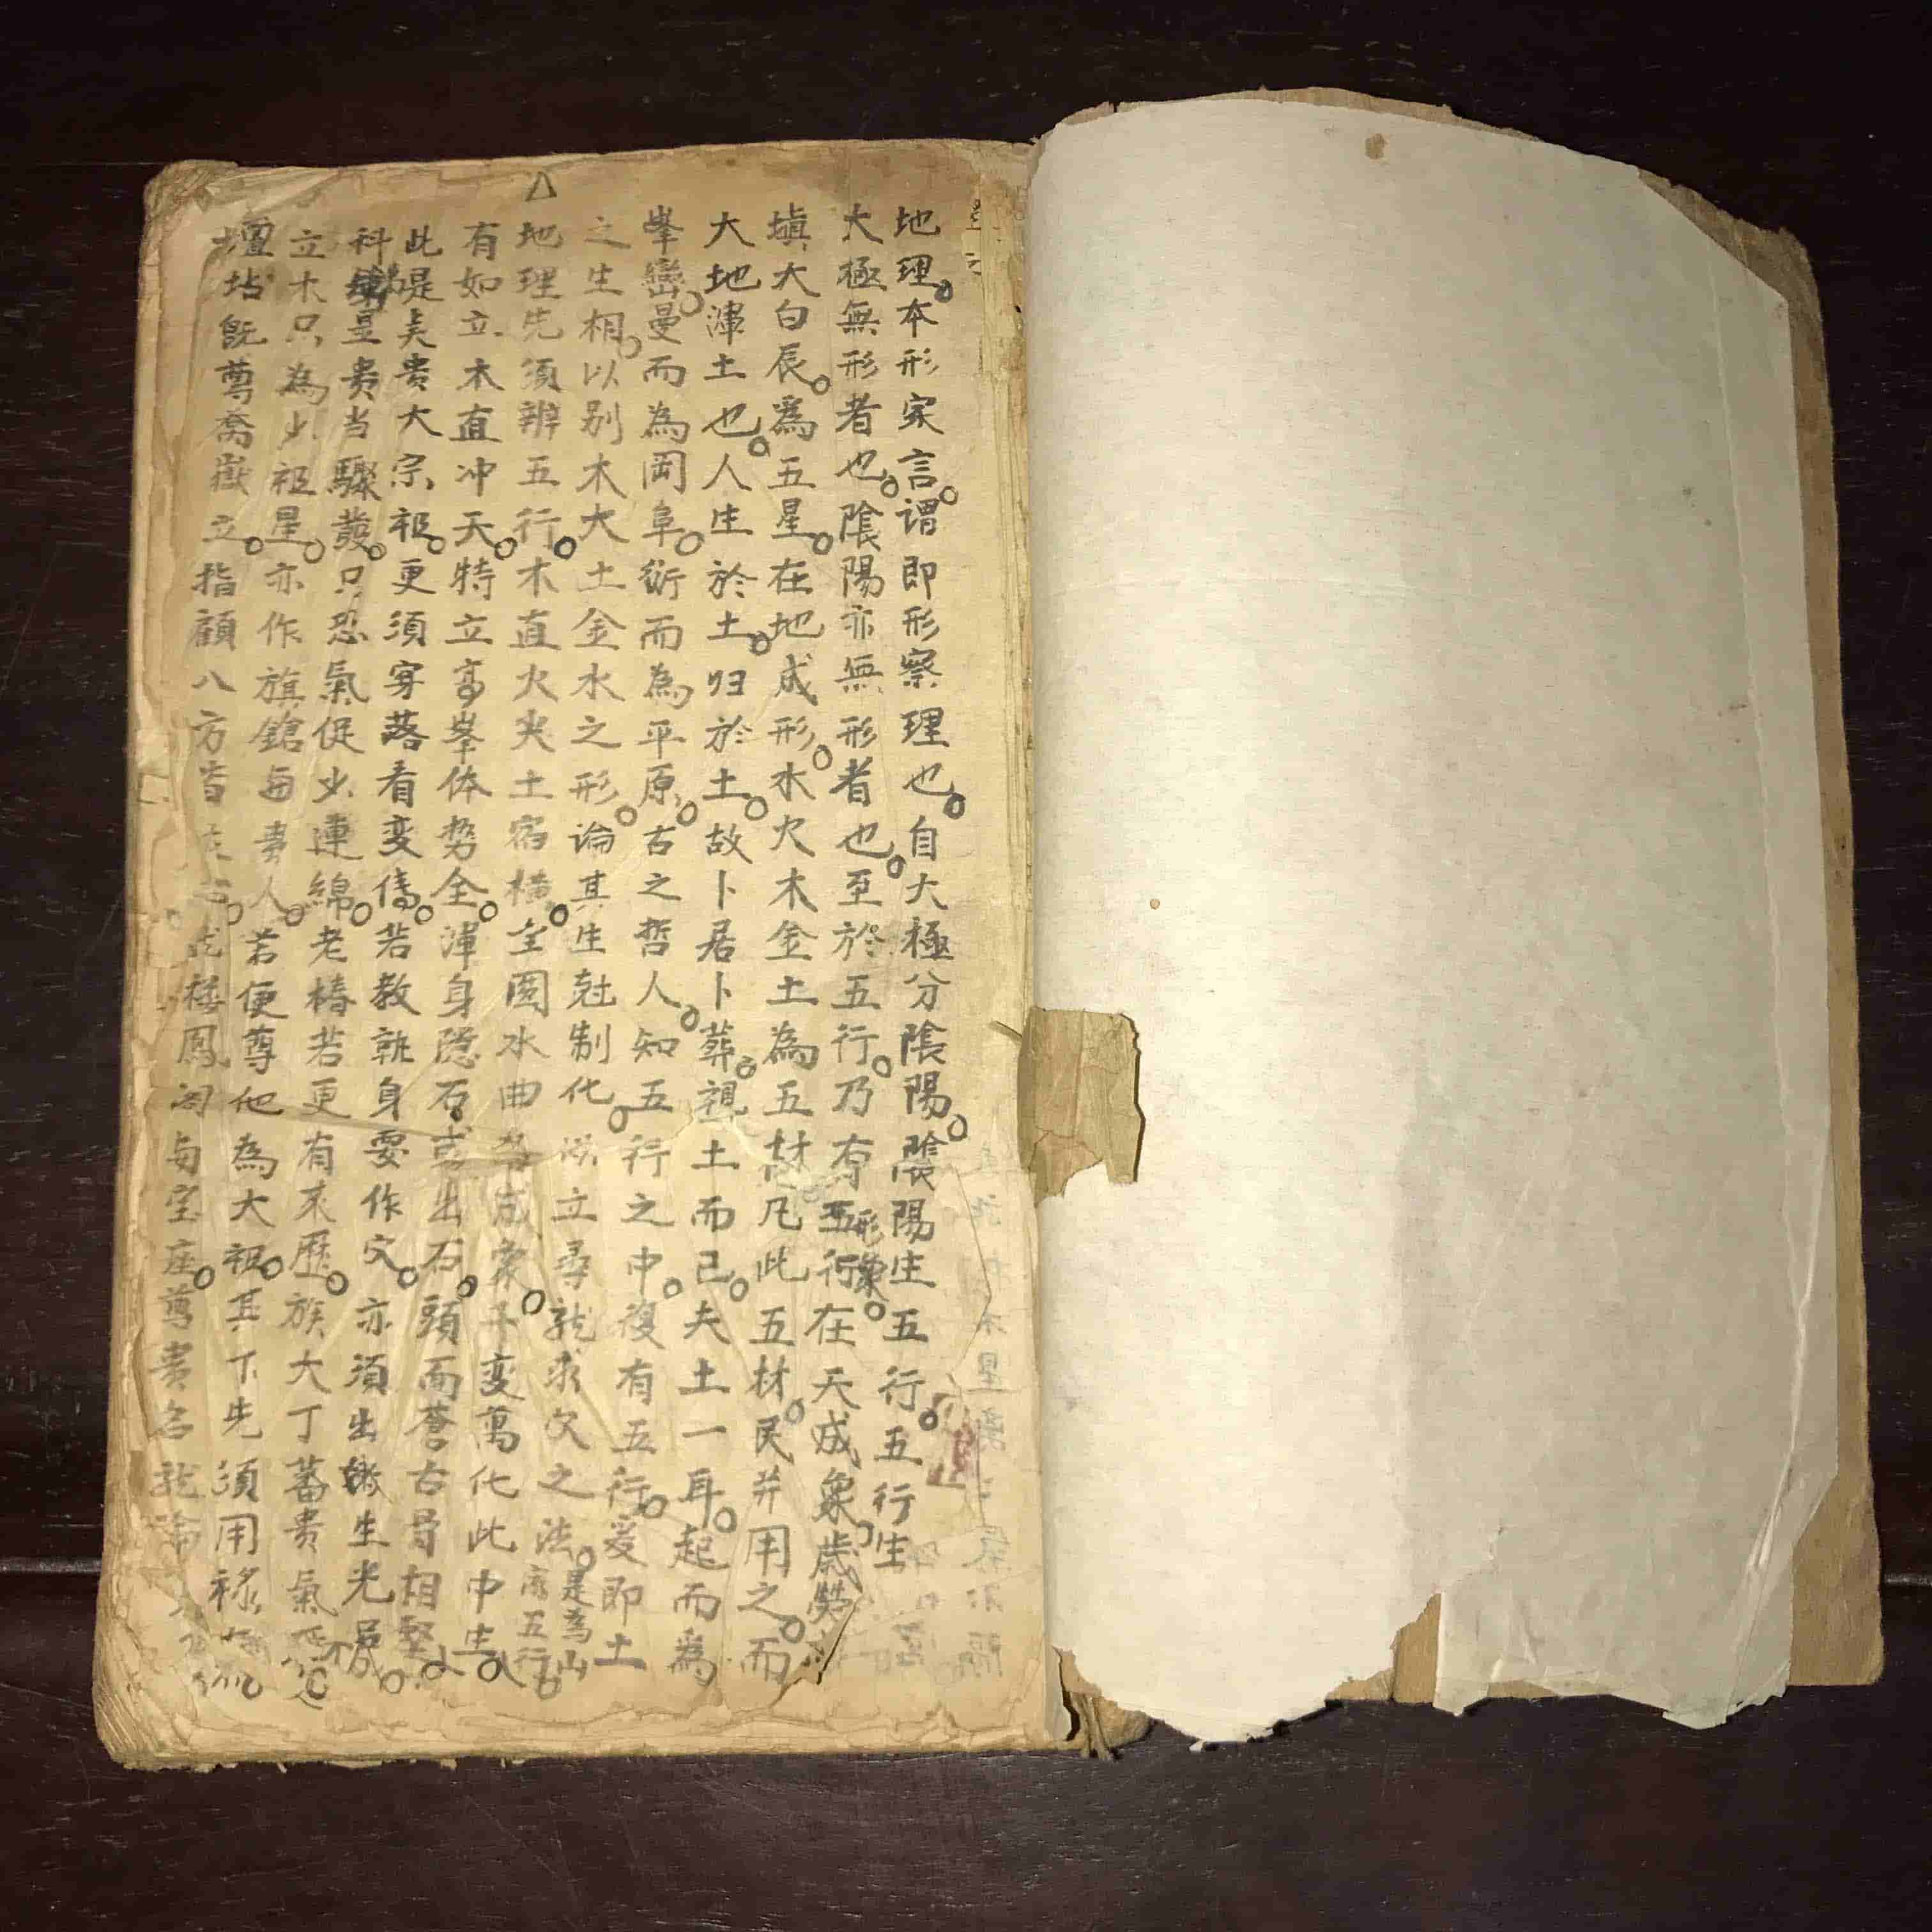 地理。本形家言。謂即形察理也。自大極分陰陽。陰陽生五行。五行生
大極無形者也。陰陽亦無形者也。至於五行。乃有形象。五行在天成象。歲熒
塡大白辰。爲五星。在地成形。水火木金土為五材。凡此五材。民并用之。而
大地渾土也。人生於土。歸於土。故卜居卜葬。視土而已。夫土一耳。起而為
峯巒。曼而為岡阜。衍而為平原。古之哲人。知五行之中。復有五行。爰即土
之生相。以别木火土金水之形。論其生尅制化。以立尋龍求穴之法。是為山家五行。
地理先須辨五行。木直火尖土宿橫。金圓水曲各成象。千变萬化此中生。
有如立木直冲天。特立高峯体势全。渾身隱石或出石。頭面蒼古骨相堅。
此是尖贵大宗祖。更須穿落看变傳。若教執身要作穴。亦須出嫩生光
科名昱贵当驟發。只恐氣促少連綿。老椿若更有來歷。族大丁蕃贵氣
立木只為少祖星。亦作旗鎗每贵人。若便尊他為大祖。其下先須用
壇坫既尊喬嶽立。指顧八方皆 鳳閣每宝座。尊贵名龍